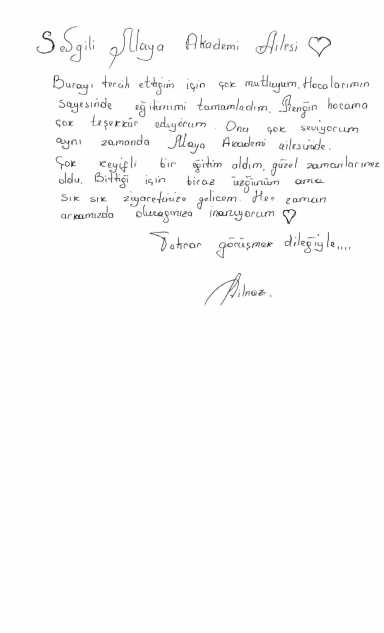 Sevgili Maya Akademi Ailesi ♡
Burayı tercih ettiğim için çok mutluyum. Hocalarımın
sayesinde eğitimimi tamamladım. Rengin hocama
çok teşekkür ediyorum. Onu çok seviyorum
aynı zamanda Maya Akademi ailesinde.
Çok keyifli bir eğitim aldım, güzel zamanlarımız
oldu. Bittiği için biraz üzgünüm ama
sık sık ziyaretinize gelicem. Her zaman
arkamızda olucağınıza inanıyorum ♡
Tekrar görüşmek dileğiyle....